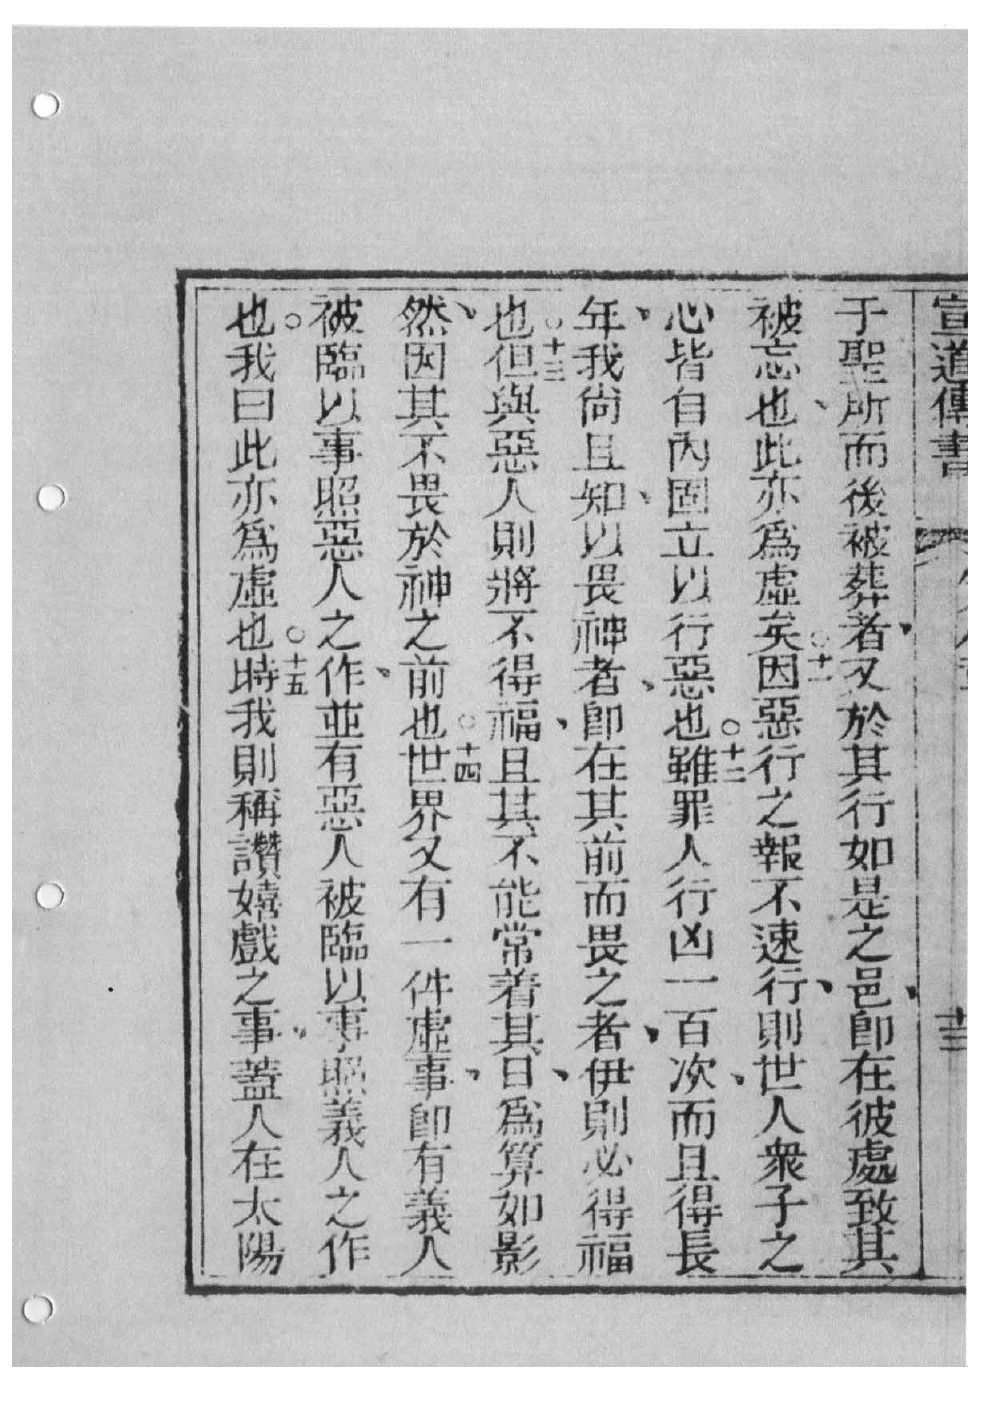 宣道傳書
于聖所而後被葬者、又於其行如是之邑、卽在彼處致其
被忘也、此亦為虛矣○十一因惡行之報不速行、則世人衆子之
心皆自內固立以行惡也○十二雖罪人行凶一百次、而且得長
年、我尚且知、以畏神者、卽在其前而畏之者、伊則必得福
也○十三但與惡人則將不得福、且其不能常着其日、為算如影
、然因其不畏於神之前也○十四世界又有一件虛事、卽有義人
被臨以事照惡人之作、並有惡人被臨以事照義人之作
也○我曰此亦為虛也○十五時我則稱讚嬉戲之事、蓋人在太陽